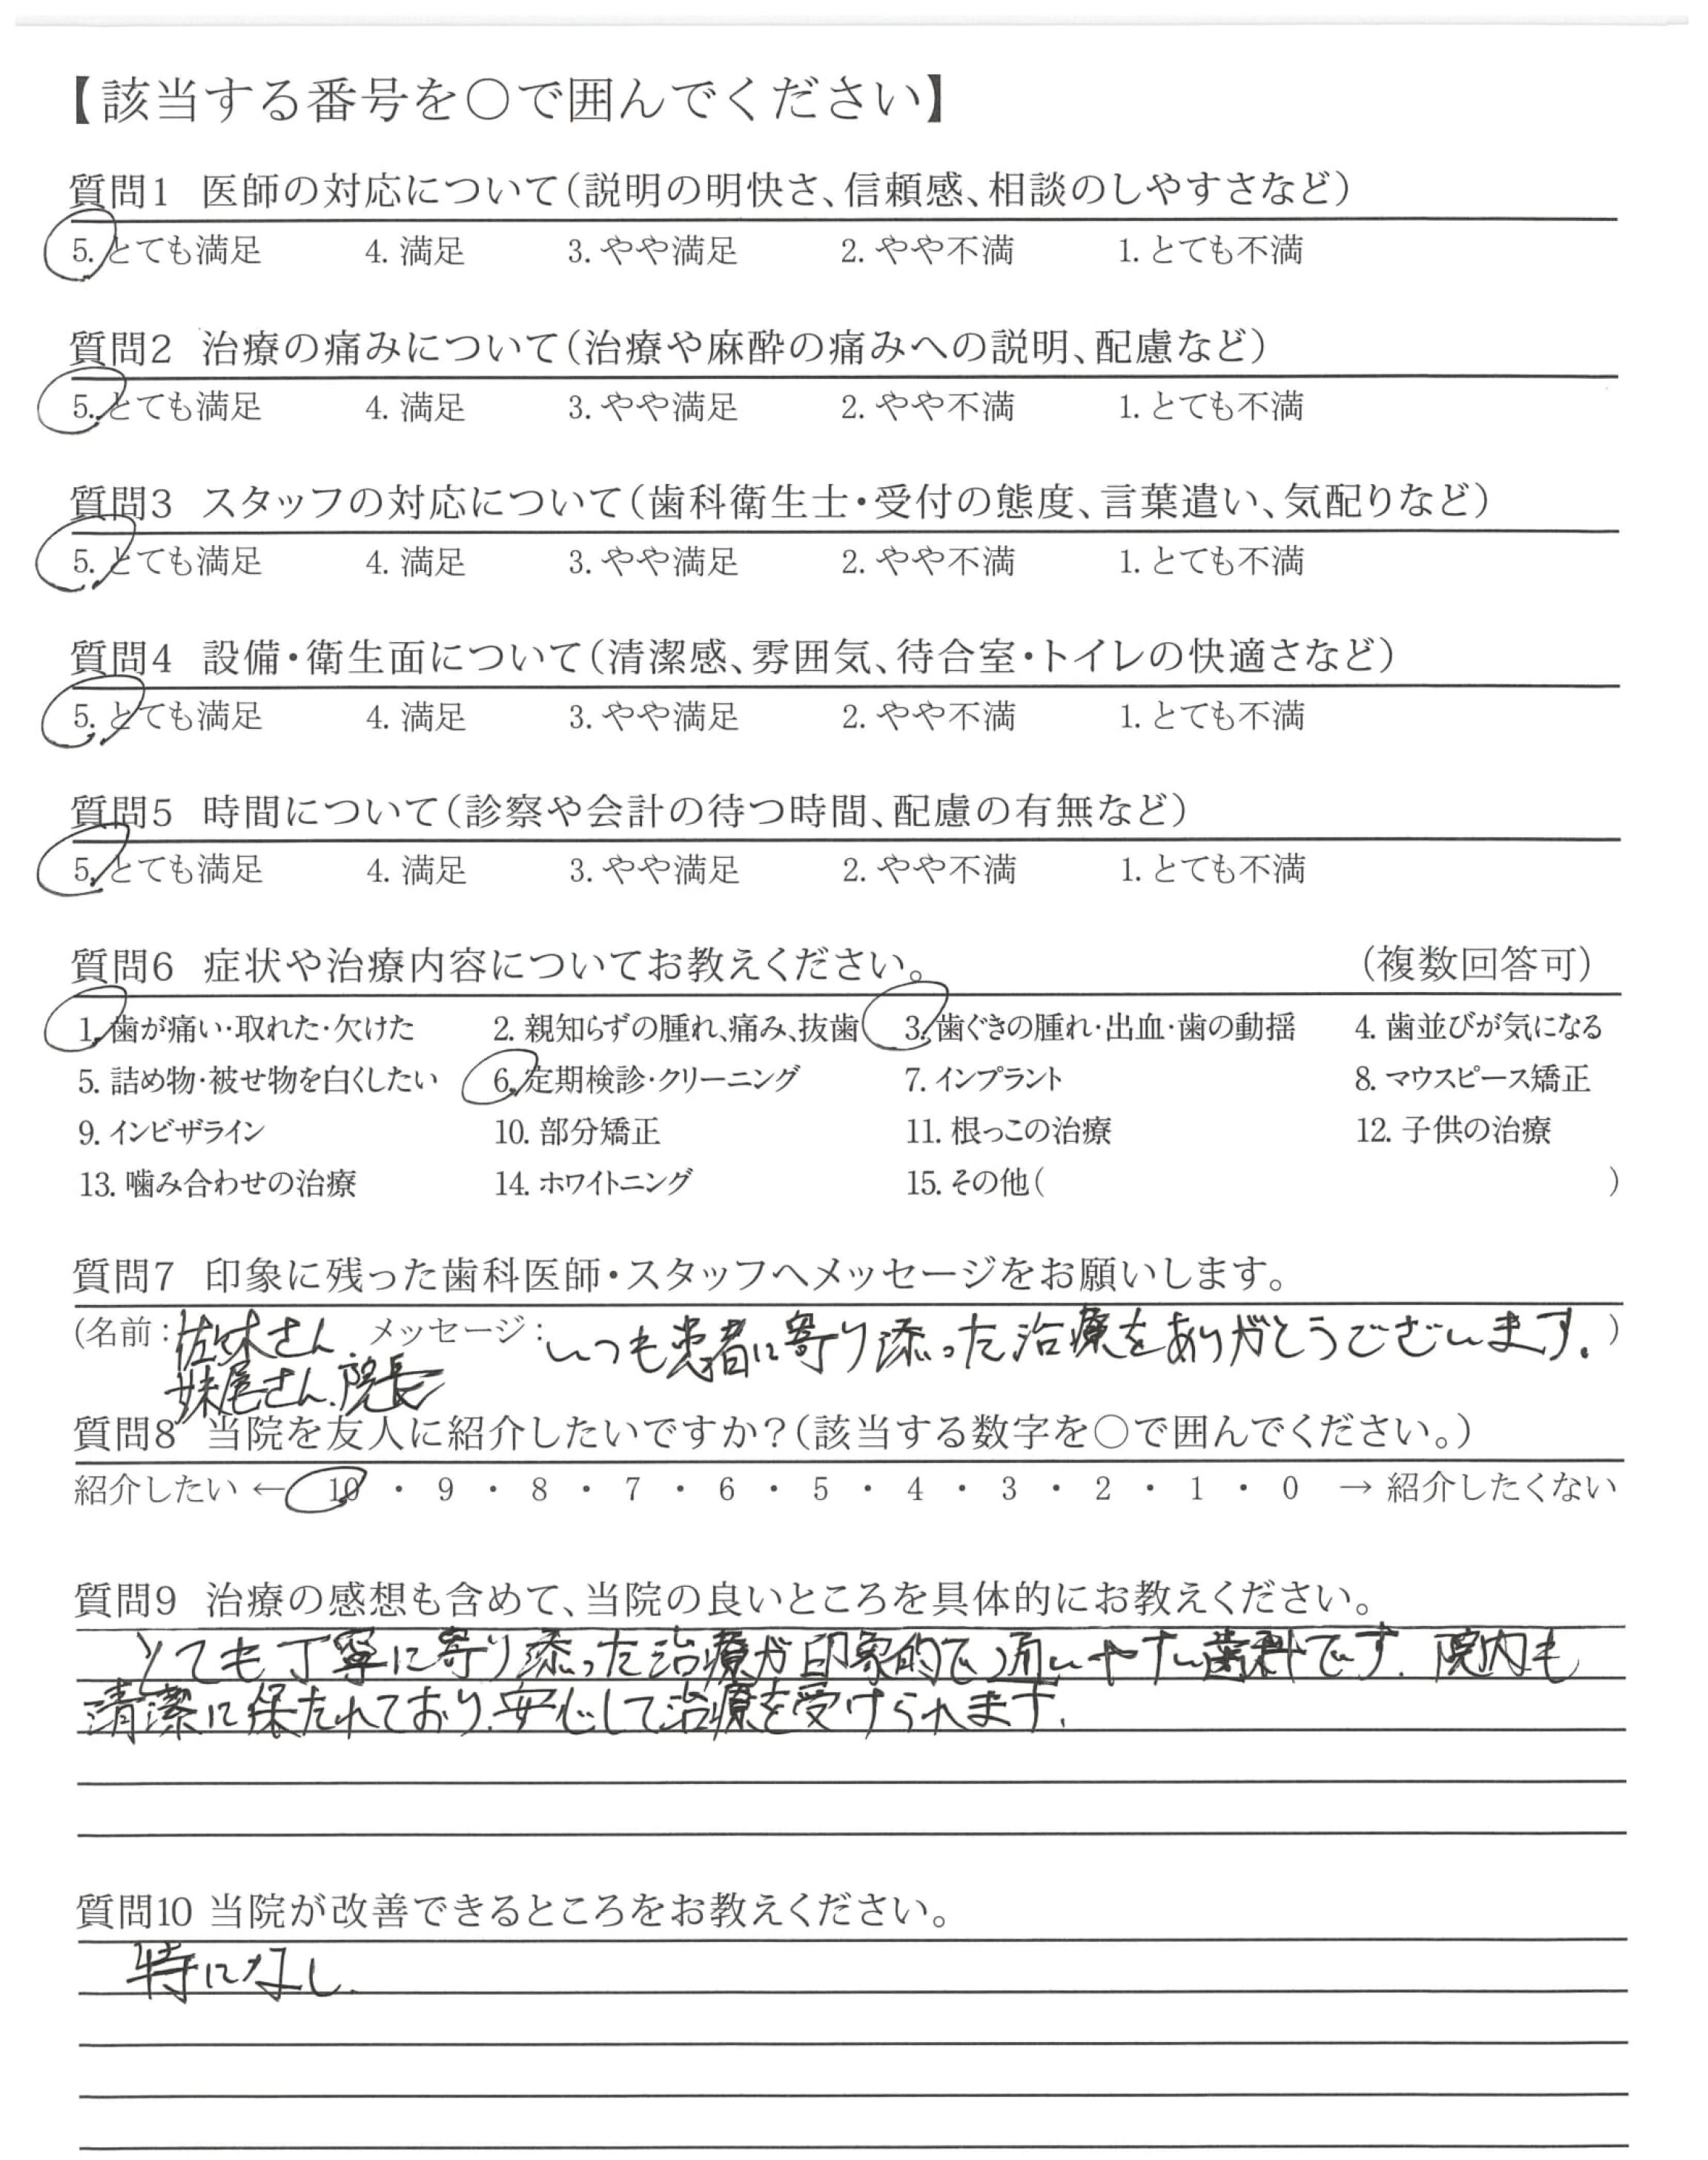 【該当する番号を○で囲んでください】
質問1 医師の対応について(説明の明快さ、信頼感、相談のしやすさなど)
5. とても満足 4. 満足 3. やや満足 2. やや不満 1. とても不満
質問2 治療の痛みについて(治療や麻酔の痛みへの説明、配慮など)
5. とても満足 4. 満足 3. やや満足 2. やや不満 1. とても不満
質問3 スタッフの対応について(歯科衛生士・受付の態度、言葉遣い、気配りなど)
5. とても満足 4. 満足 3. やや満足 2. やや不満 1. とても不満
質問4 設備・衛生面について(清潔感、雰囲気、待合室・トイレの快適さなど)
5. とても満足 4. 満足 3. やや満足 2. やや不満 1. とても不満
質問5 時間について(診察や会計の待つ時間、配慮の有無など)
5. とても満足 4. 満足 3. やや満足 2. やや不満 1. とても不満
質問6 症状や治療内容についてお教えください。 (複数回答可)
1. 歯が痛い・取れた・欠けた 2. 親知らずの腫れ、痛み、抜歯 3. 歯ぐきの腫れ・出血・歯の動揺 4. 歯並びが気になる
5. 詰め物・被せ物を白くしたい 6. 定期検診・クリーニング 7. インプラント 8. マウスピース矯正
9. インビザライン 10. 部分矯正 11. 根っこの治療 12. 子供の治療
13. 噛み合わせの治療 14. ホワイトニング 15. その他( )
質問7 印象に残った歯科医師・スタッフへメッセージをお願いします。
(名前: 佐々木さん メッセージ: いつも患者に寄り添った治療をありがとうございます。)
妹尾さん、院長
質問8 当院を友人に紹介したいですか?(該当する数字を○で囲んでください。)
紹介したい ← 10 ・ 9 ・ 8 ・ 7 ・ 6 ・ 5 ・ 4 ・ 3 ・ 2 ・ 1 ・ 0 → 紹介したくない
質問9 治療の感想も含めて、当院の良いところを具体的にお教えください。
とても丁寧に寄り添った治療が印象的で通いやすい歯科です。院内も
清潔に保たれており、安心して治療を受けられます。
質問10 当院が改善できるところをお教えください。
特になし.